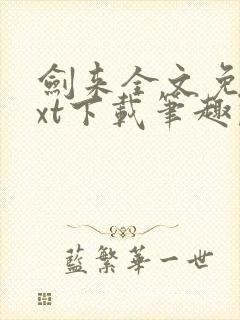 劍来全文免
xt下載筆趣
藍繁華一世